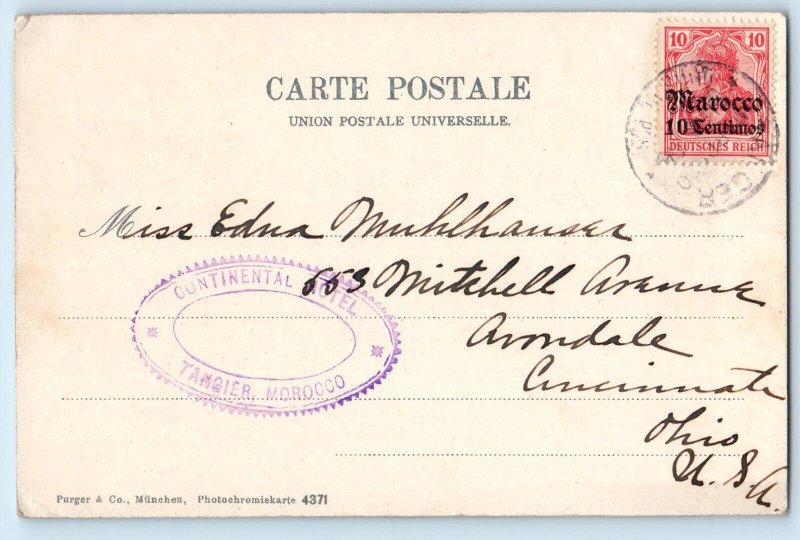 CARTE POSTALE
UNION POSTALE UNIVERSELLE.
10 10
Marocco
10 Centimos
DEUTSCHES REICH
Miss Edna Muhlhauser
553 Mitchell Avenue
Avondale
Cincinnati
Ohio
U. S. A.
CONTINENTAL HOTEL
TANGIER, MOROCCO
Purger & Co., München, Photochromiekarte 4371